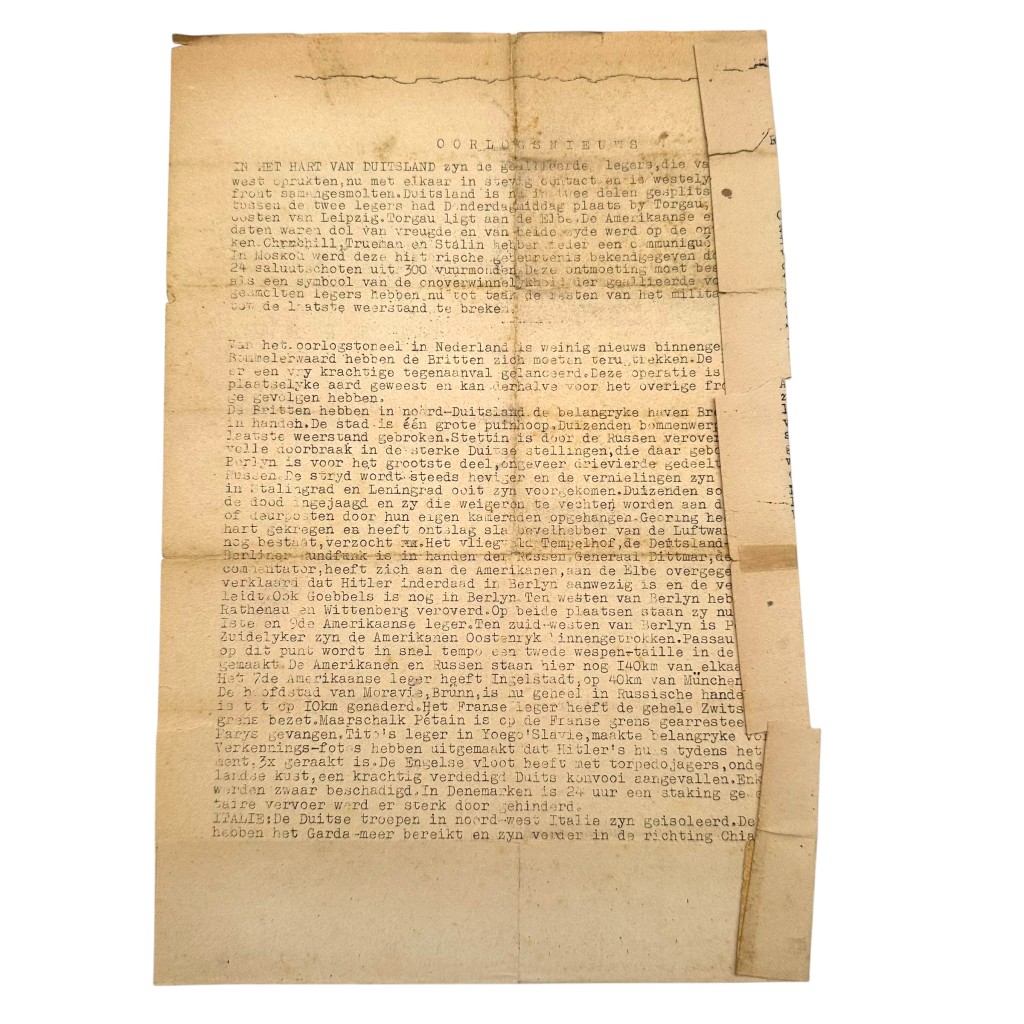 OORLOGSNIEUWS
IN HET HART VAN DUITSLAND zyn de geallieerde legers,die va
west oprukten,nu met elkaar in stevig contact en is westely
front samengesmolten.Duitsland is nu in twee delen gesplits
tussen de twee legers had Donderdagmiddag plaats by Torgau,
oosten van Leipzig.Torgau ligt aan de Elbe.De Amerikaanse e
daten waren dol van vreugde en van beide zyde werd op de on
ken.Churchill,Trueman en Stalin hebben ieder een communiqué
In Moskou werd deze historische gebeurtenis bekendgegeven d
24 saluutschoten uit 300 vuurmonden.Deze ontmoeting moet bes
als een symbool van de onoverwinnelykheid der geallieerde vo
gesmolten legers hebben nu tot taak de resten van het milita
om de laatste weerstand te breken.
Van het oorlogstoneel in Nederland is weinig nieuws binnenge
Bommelerwaard hebben de Britten zich moeten terugtrekken.De
er een vry krachtige tegenaanval gelanceerd.Deze operatie is
plaatselyke aard geweest en kan derhalve voor het overige fr
ge gevolgen hebben.
De Britten hebben in noord-Duitsland de belangryke haven Bre
in handen.De stad is één grote puinhoop.Duizenden bommenwerp
laatste weerstand gebroken.Stettin is door de Russen verover
volle doorbraak in de sterke Duitse stellingen,die daar gebo
Berlyn is voor het grootste deel,ongeveer drievierde gedeelt
Russen.De stryd wordt steeds heviger en de vernielingen zyn
in Stalingrad en Leningrad ooit zyn voorgekomen.Duizenden so
de dood ingejaagd en zy die weigeren te vechten worden aan d
of deurposten door hun eigen kameraden opgehangen.Goering he
hart gekregen en heeft ontslag sla bevelhebber van de Luftwa
nog bestaat,verzocht xx.Het vliegveld Tempelhof,de Deitsland-
Berliner Rundfunk is in handen der Russen.Generaal Dittmar,de
commentator,heeft zich aan de Amerikanen,aan de Elbe overgege
verklaard dat Hitler inderdaad in Berlyn aanwezig is en de ve
leidt.Ook Goebbels is nog in Berlyn.Ten westen van Berlyn heb
Rathenau en Wittenberg veroverd.Op beide plaatsen staan zy nu
Iste en 9de Amerikaanse leger.Ten zuid-westen van Berlyn is P
Zuidelyker zyn de Amerikanen Oostenryk binnengetrokken.Passau
op dit punt wordt in snel tempo een twede wespen-taille in de
gemaakt.De Amerikanen en Russen staan hier nog I40km van elkaa
Het 7de Amerikaanse leger heeft Ingelstadt,op 40km van München
De hoofdstad van Moravie,Brunn,is nu geheel in Russische hande
is tot op IOkm genaderd.Het Franse leger heeft de gehele Zwits
grens bezet.Maarschalk Pétain is op de Franse grens gearrestee
Parys gevangen.Tito's leger in Yoego'Slavie,maakte belangryke vo
Verkennings-fotos hebben uitgemaakt dat Hitler's huis tydens het
ment,3x geraakt is.De Engelse vloot heeft met torpedojagers,onde
landse kust,een krachtig verdedigd Duits konvooi aangevallen.Enk
werden zwaar beschadigd.In Denemarken is 24 uur een staking ge
taire vervoer werd er sterk door gehinderd.
ITALIE:De Duitse troepen in noord-west Italie zyn geisoleerd.De
hebben het Garda-meer bereikt en zyn verder in de richting Chia